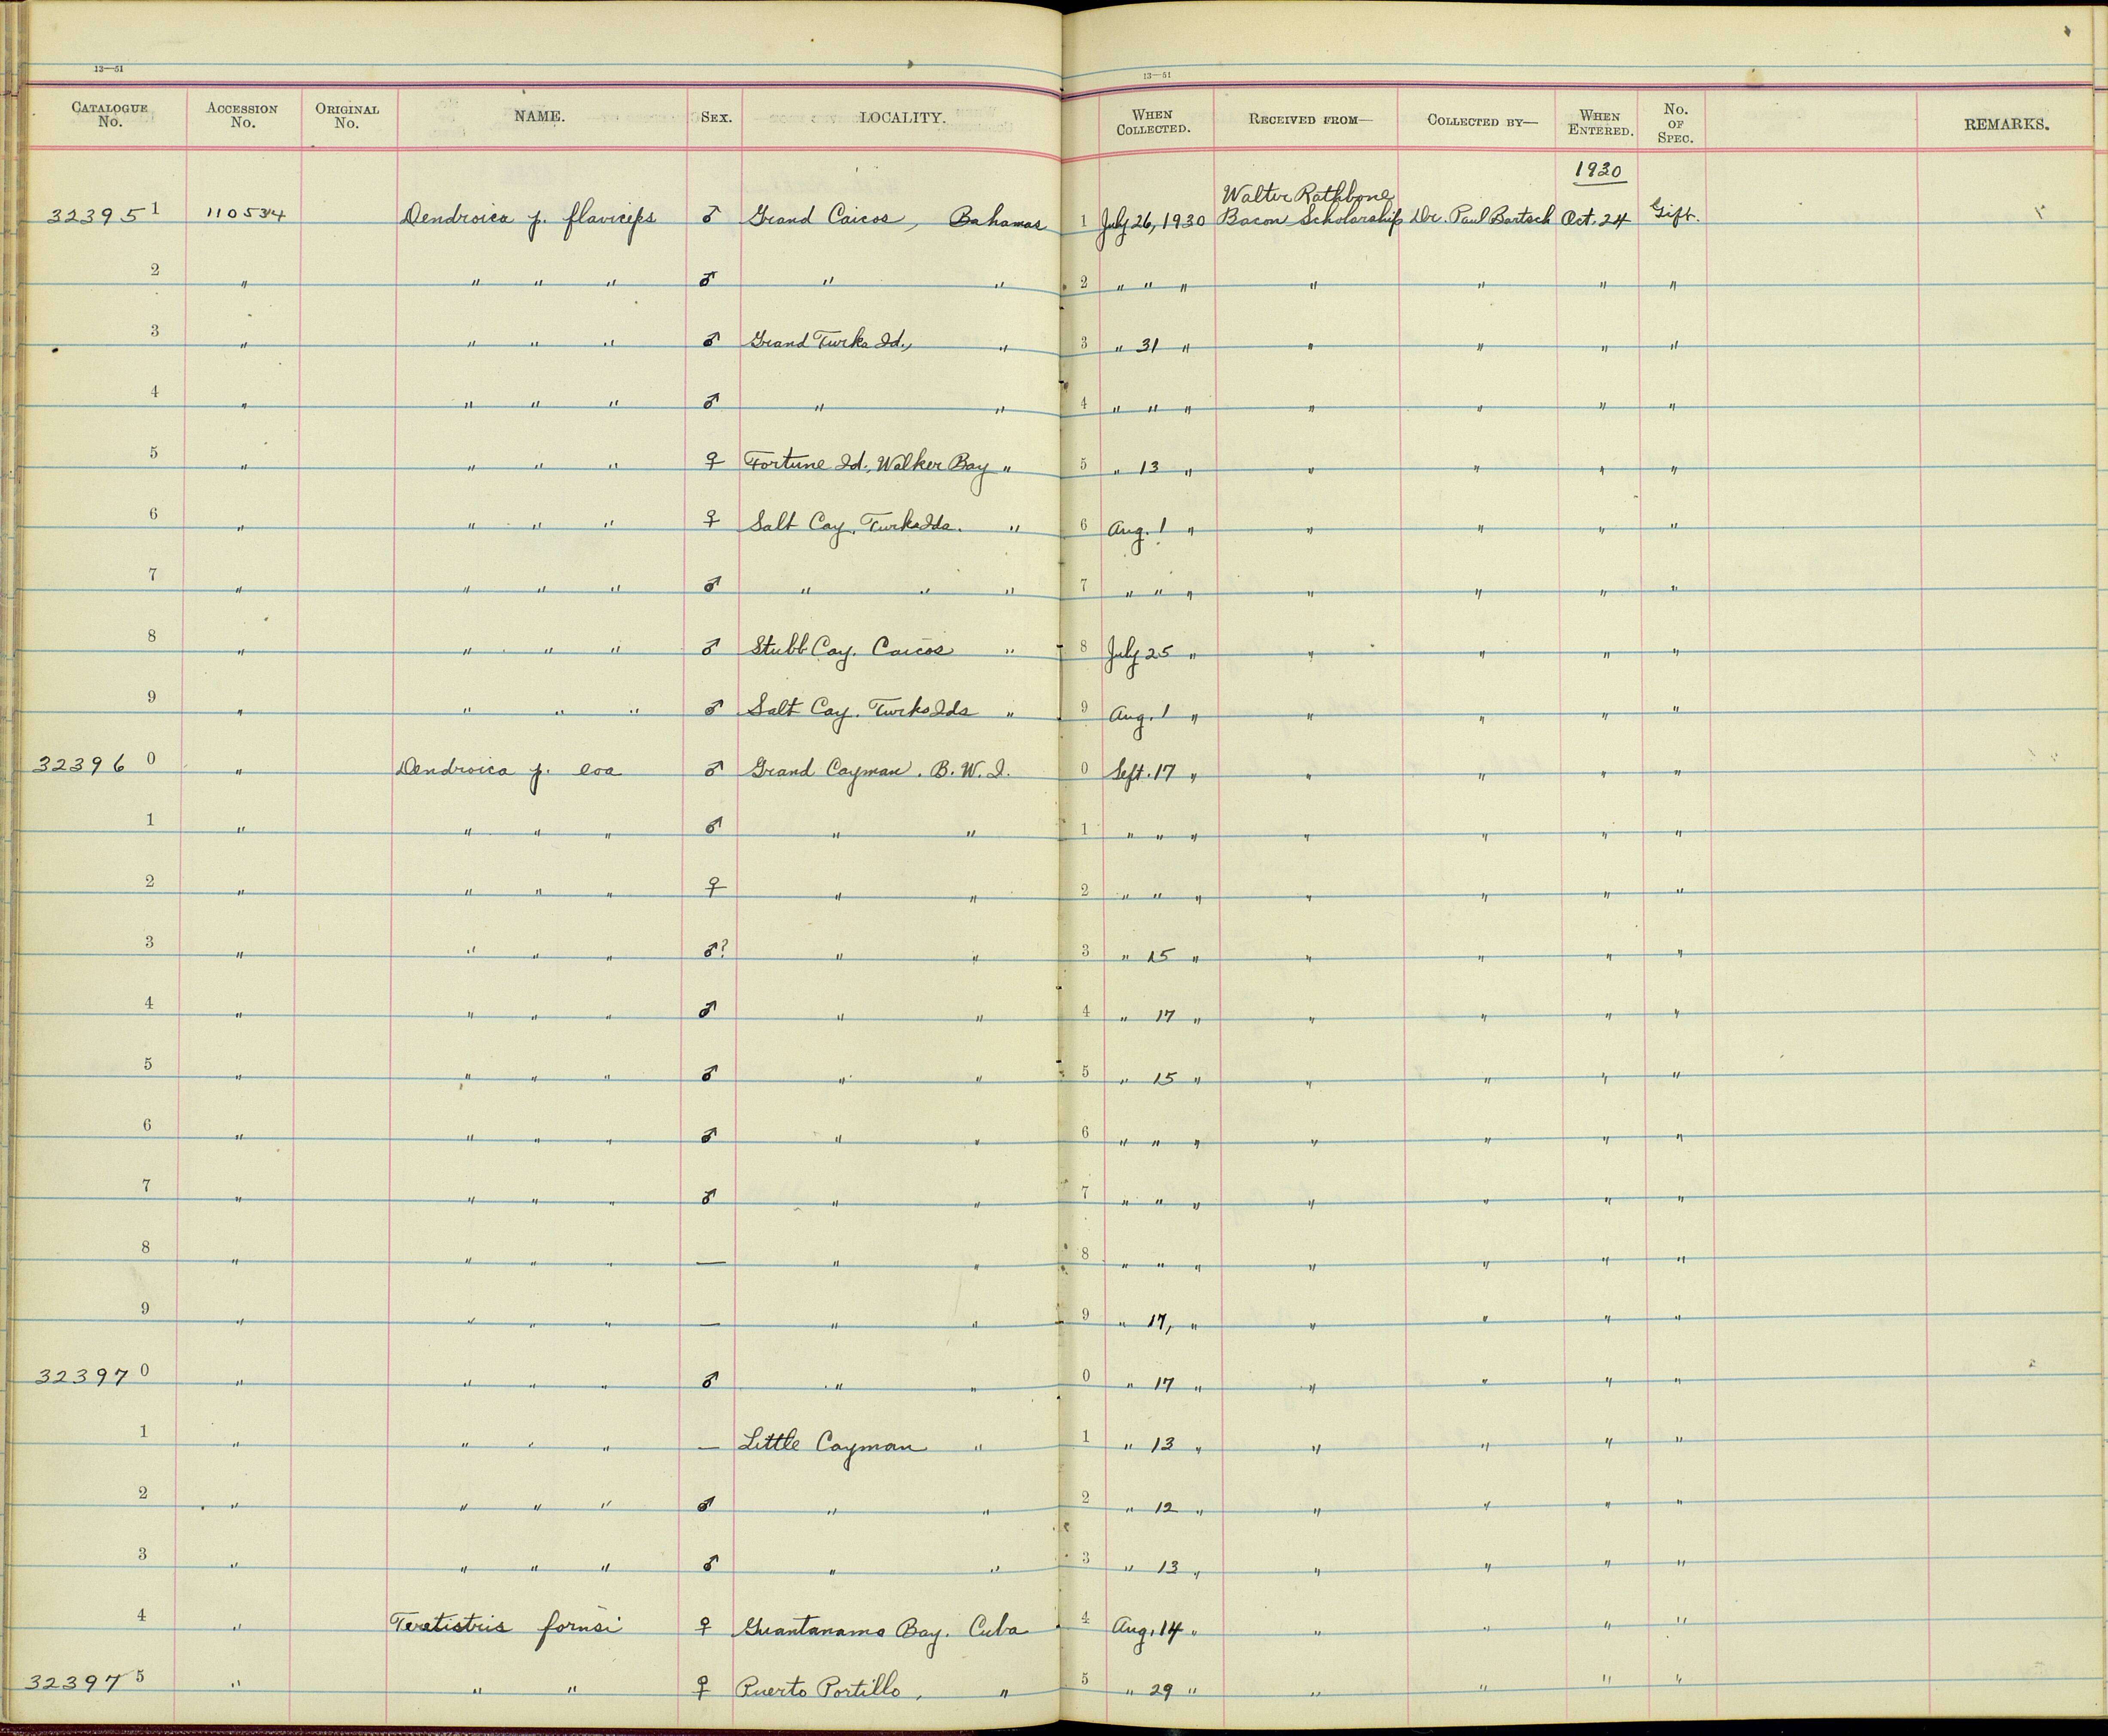 13—51 13—51
CATALOGUE No. ACCESSION No. ORIGINAL No. NAME. SEX. LOCALITY. WHEN COLLECTED. RECEIVED FROM— COLLECTED BY— WHEN ENTERED. No. OF SPEC. REMARKS.
1930
32395 1 110534 Dendroica p. flaviceps ♂ Grand Caicos, Bahamas 1 July 26, 1930 Walter Rathbone Bacon Scholarship Dr. Paul Bartsch Oct. 24 Gift.
2 " " " " ♂ " " 2 " " " " " " "
3 " " " " ♂ Grand Turks Id., " 3 " 31 " " " " "
4 " " " " ♂ " " 4 " " " " " " "
5 " " " " ♀ Fortune Id., Walker Bay " 5 " 13 " " " " "
6 " " " " ♀ Salt Cay, Turks Ids. " 6 Aug. 1 " " " " "
7 " " " " ♂ " " " 7 " " " " " " "
8 " " " " ♂ Stubb Cay. Caicos " 8 July 25 " " " " "
9 " " " " ♂ Salt Cay. Turks Ids " 9 Aug. 1 " " " " "
32396 0 " Dendroica p. eoa ♂ Grand Cayman. B. W. I. 0 Sept. 17 " " " " "
1 " " " " ♂ " " 1 " " " " " " "
2 " " " " ♀ " " 2 " " " " " " "
3 " " " " ♂? " " 3 " 15 " " " " "
4 " " " " ♂ " " 4 " 17 " " " " "
5 " " " " ♂ " " 5 " 15 " " " " "
6 " " " " ♂ " " 6 " " " " " " "
7 " " " " ♂ " " 7 " " " " " " "
8 " " " " — " " 8 " " " " " " "
9 " " " " — " " 9 " 17, " " " " "
32397 0 " " " " ♂ " " 0 " 17 " " " " "
1 " " " " — Little Cayman " 1 " 13 " " " " "
2 " " " " ♂ " " 2 " 12 " " " " "
3 " " " " ♂ " " 3 " 13 " " " " "
4 " Teretistris fornsi ♀ Guantanamo Bay. Cuba 4 Aug. 14 " " " " "
32397 5 " " " ♀ Puerto Portillo, " 5 " 29 " " " " "